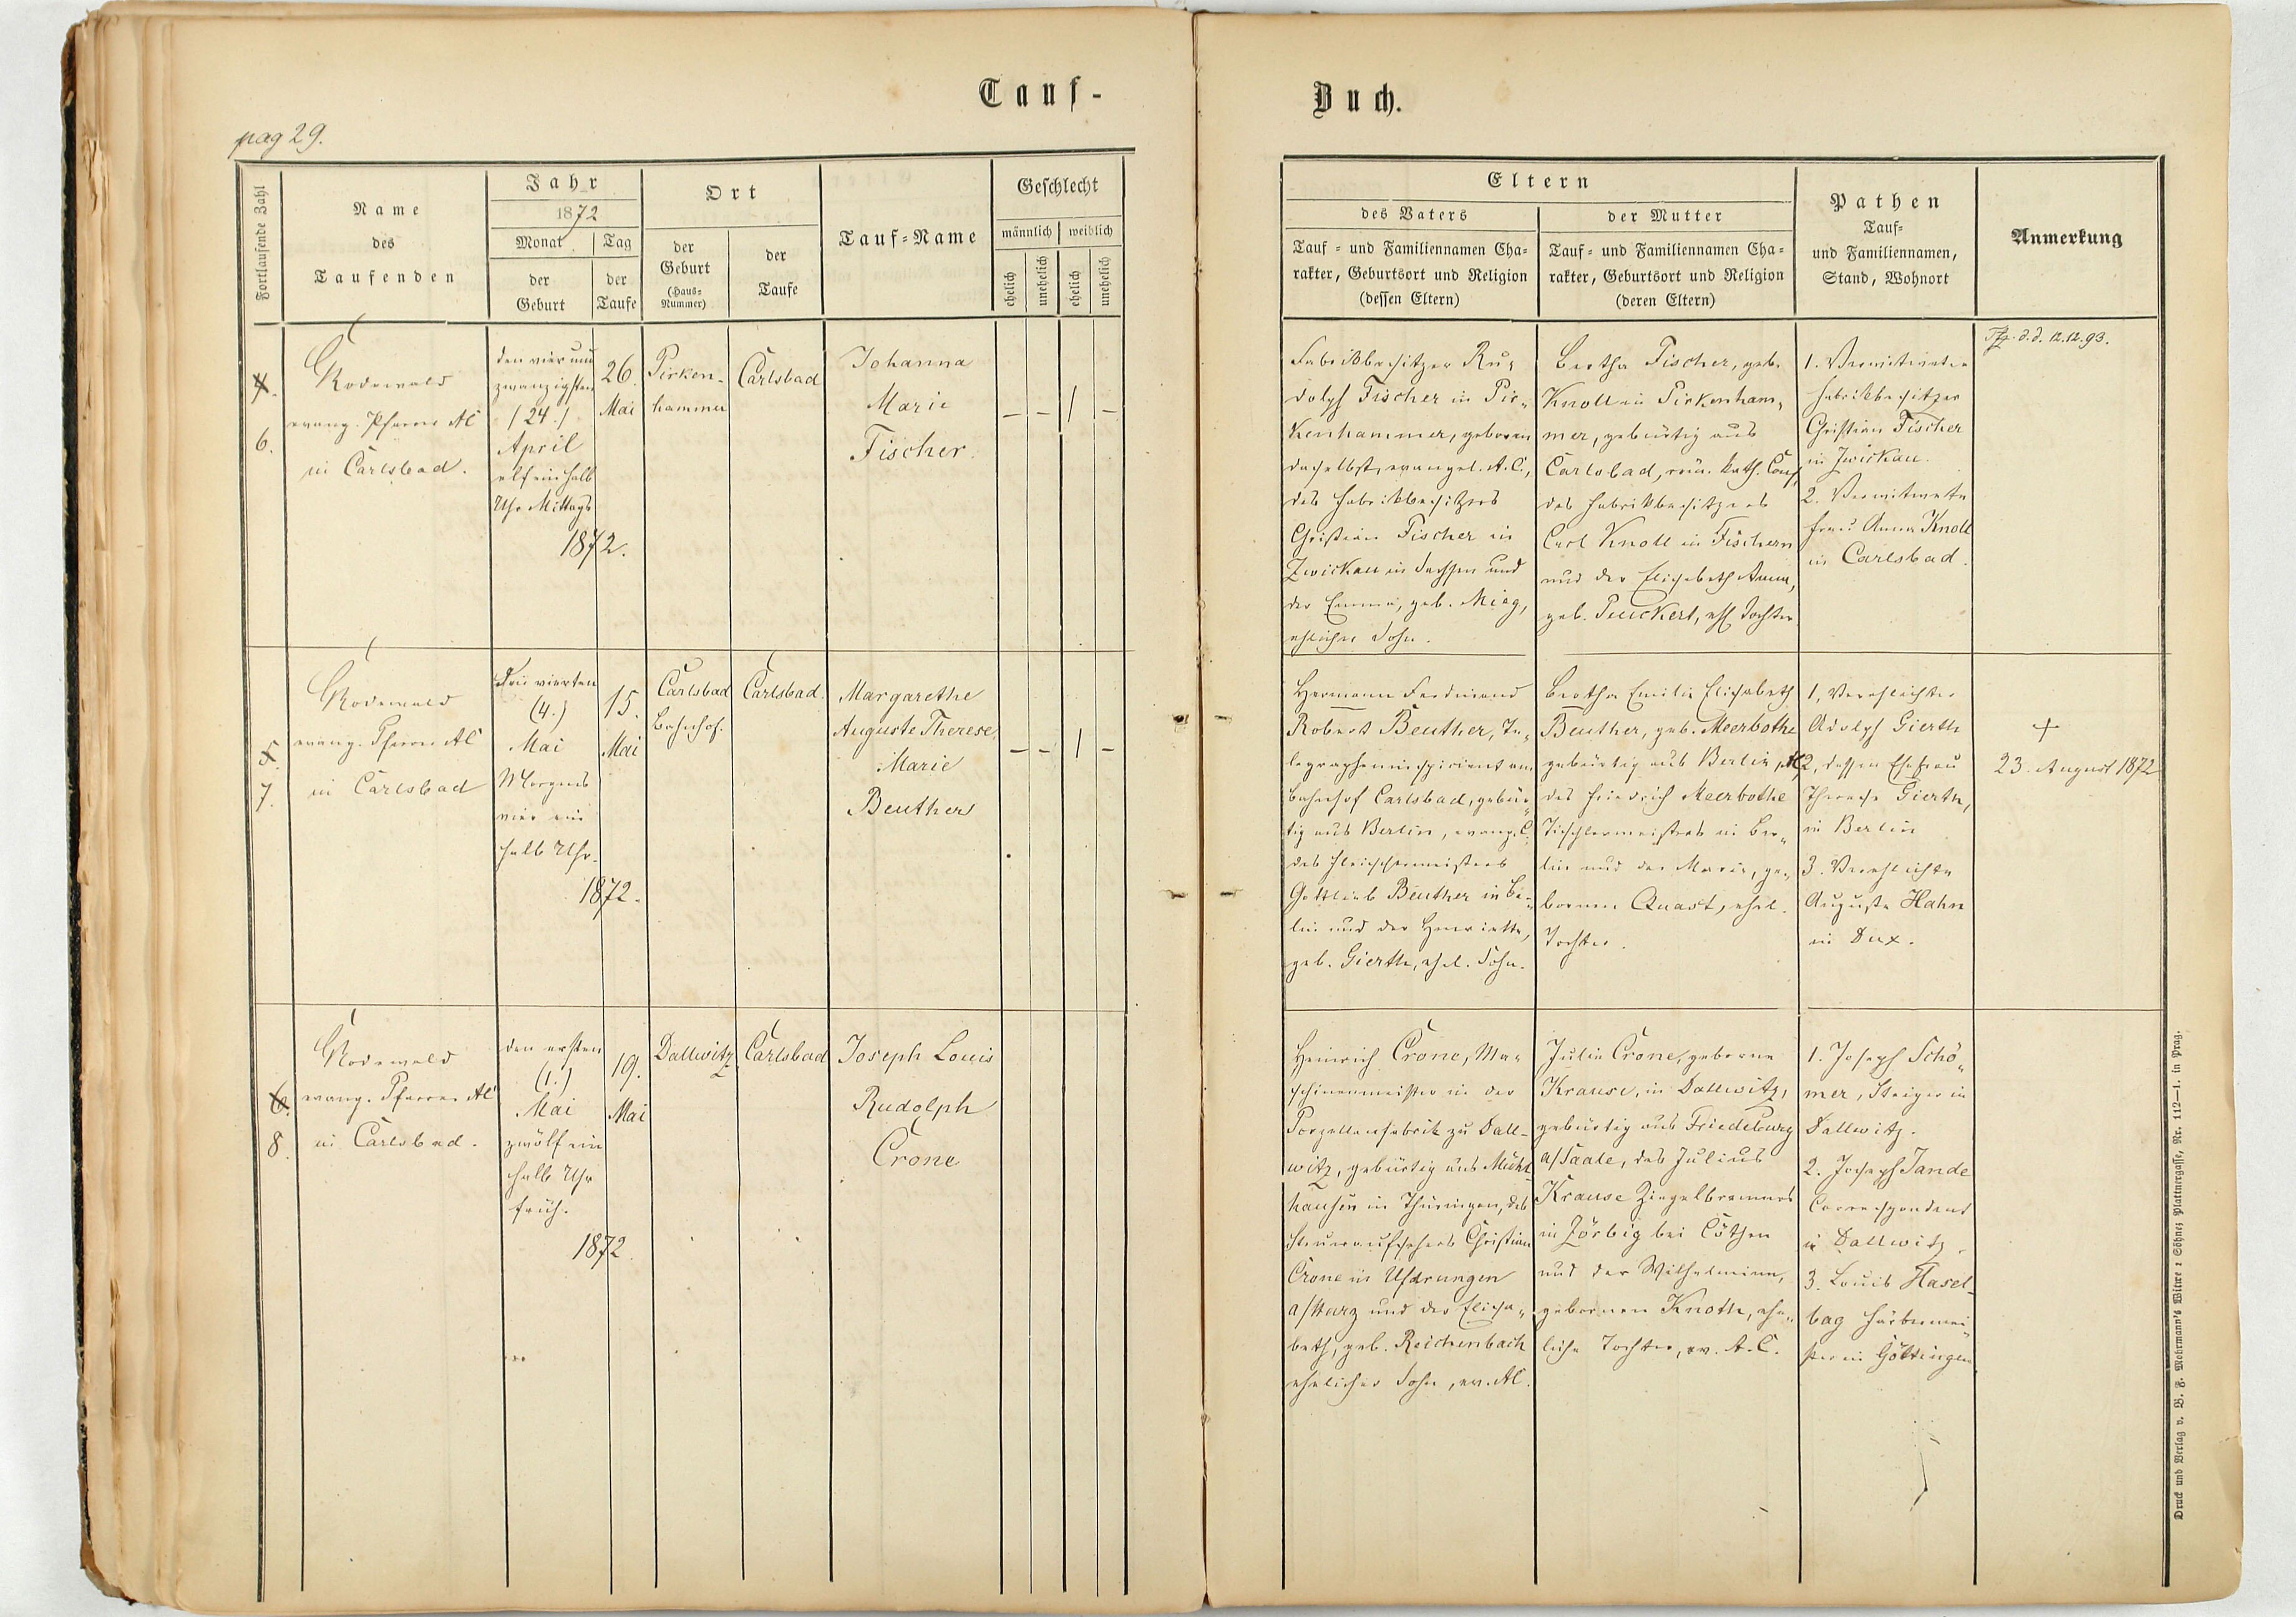 Tauf-
Buch.
pag 29.
Fortlaufende Zahl
Name
des
Taufenden
Jahr
1872
Monat
Tag
der
Geburt
der
Taufe
Ort
der
Geburt
(Haus-
Nummer)
der
Taufe
Tauf-Name
Geschlecht
männlich
weiblich
ehelich
unehelich
ehelich
unehelich
Eltern
des Vaters
der Mutter
Tauf- und Familiennamen Cha-
rakter, Geburtsort und Religion
(dessen Eltern)
Tauf- und Familiennamen Cha-
rakter, Geburtsort und Religion
(deren Eltern)
Pathen
Tauf-
und Familiennamen,
Stand, Wohnort
Anmerkung
4.
6.
Rodewald
evang. Pfarrer AC
in Carlsbad.
den vier und
zwanzigsten
/24./
April
elf ein halb
Uhr Mittags
1872.
26.
Mai
Pirken-
hammer
Carlsbad
Johanna
Marie
Fischer.
– – 1 –
Fabrikbesitzer Ru-
dolph Fischer in Pir-
kenhammer, geboren
daselbst, evangel. A.C.,
des Fabrikbesitzers
Christian Fischer in
Zwickau in Sachsen und
der Emma, geb. Mieg,
ehelicher Sohn.
Bertha Fischer, geb.
Knoll in Pirkenham-
mer, gebürtig aus
Carlsbad, röm. kath. Conf.,
des Fabrikbesitzers
Carl Knoll in Fischern
und der Elisabeth Anna,
geb. Peuckert, ehl. Tochter
1. Verwitweter
Fabrikbesitzer
Christian Fischer
in Zwickau.
2. Verwitwete
Frau Anna Knoll
in Carlsbad.
d.d. 12.12.93.
5.
7.
Rodewald
evang. Pfarrer AC
in Carlsbad
Den vierten
(4.)
Mai
Morgens
vier ein
halb Uhr.
1872.
15.
Mai
Carlsbad
Bahnhof.
Carlsbad.
Margarethe
Auguste Therese
Marie
Beuther
– – 1 –
Hermann Ferdinand
Robert Beuther, Te-
legrapheninspicient am
Bahnhof Carlsbad, gebür-
tig aus Berlin, evang. C.
des Fleischermeisters
Gottlieb Beuther in Ber-
lin und der Henriette,
geb. Gierth, ehel. Sohn.
Bertha Emilie Elisabeth
Beuther, geb. Meerbothe
gebürtig aus Berlin, AC
des Friedrich Meerbothe
Tischlermeisters in Ber-
lin und der Marie, ge-
bornen Quast, ehel.
Tochter.
1, Verehlichter
Adolph Gierth
2, dessen Ehefrau
Therese Gierth,
in Berlin
3. Verehlichte
Auguste Hahn
in Dux.
+
23. August 1872
6.
8.
Rodewald
evang. Pfarrer AC
in Carlsbad.
den ersten
(1.)
Mai
zwölf ein
halb Uhr
früh.
1872.
19.
Mai
Dallwitz
Carlsbad
Joseph Louis
Rudolph
Crone
Heinrich Crone, Ma-
schinenmeister in der
Porzellanfabrik zu Dall-
witz, gebürtig aus Mühl-
hausen in Thüringen, des
Steueraufsehers Christian
Crone in Uftrungen
a/Harz und der Elisa-
beth, geb. Reichenbach
ehelicher Sohn, ev. AC.
Julie Crone, geborne
Krause, in Dallwitz,
gebürtig aus Friedeburg
a/Saale, des Julius
Krause Ziegelbrenners
in Zörbig bei Cöthen
und der Wilhelmine,
gebornen Knoth, ehe-
liche Tochter, ev. A.C.
1. Joseph Schö-
mer, Steiger in
Dallwitz.
2. Joseph Jande
Correspondent
in Dallwitz.
3. Louis Hasel-
bag Färbermei-
ster in Göttingen
Druck und Verlag v. B. F. Mohrmann's Witwe & Söhne, Plattnergasse, Nr. 112—1. in Prag.